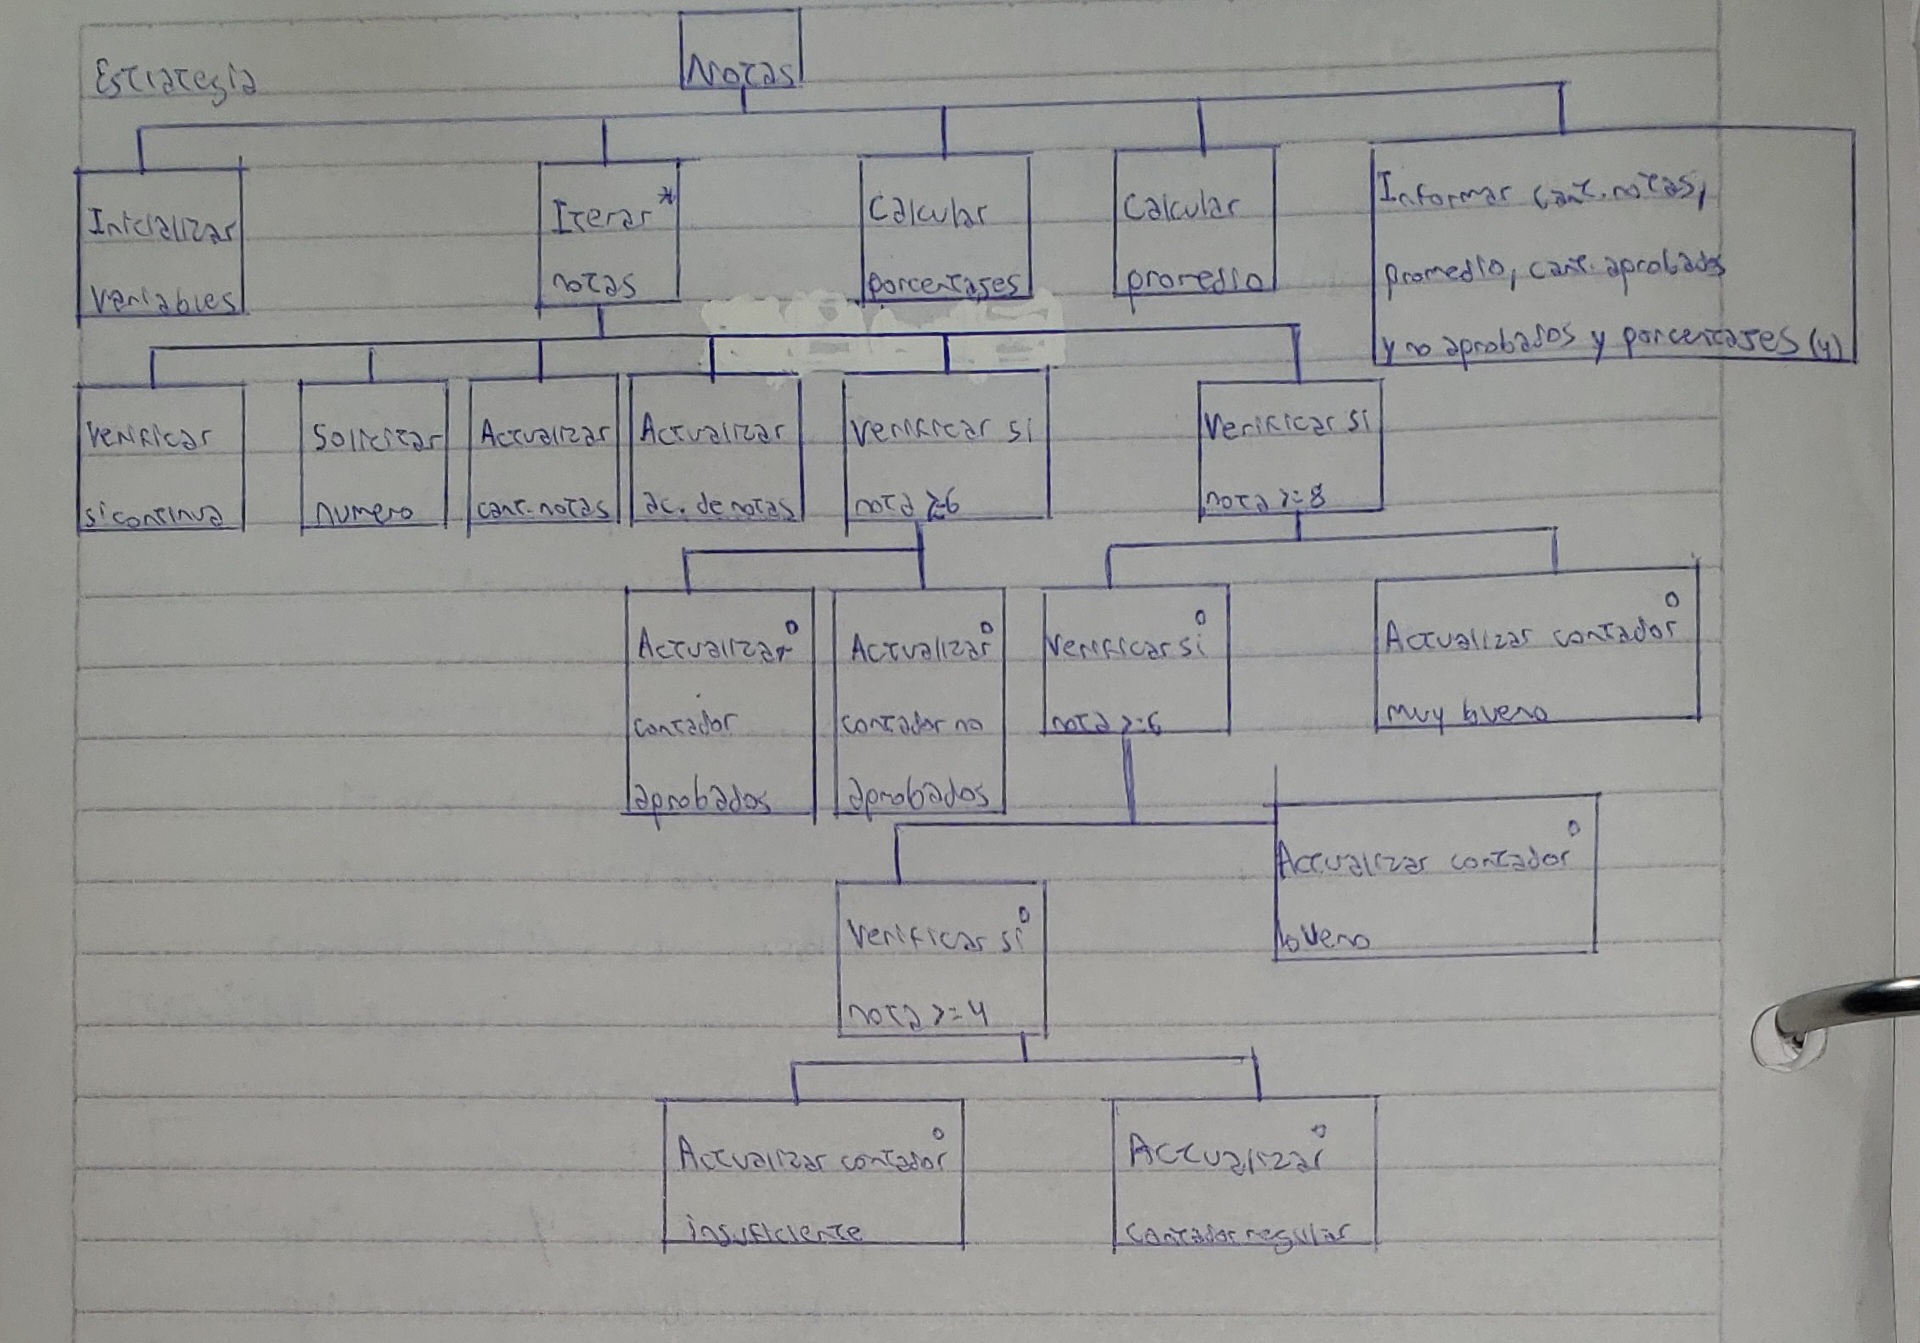 Estrategia
Notas
Inicializar
variables
Iterar *
notas
Calcular
porcentajes
Calcular
promedio
Informar cant. notas,
promedio, cant. aprobados
y no aprobados y porcentajes (4)
Verificar
si continua
Solicitar
numero
Actualizar
cant. notas
Actualizar
ac. de notas
Verificar si
nota >=6
Verificar si
nota >=8
Actualizar o
contador
aprobados
Actualizar o
contador no
aprobados
Verificar si o
nota >=6
Actualizar contador o
muy bueno
Verificar si o
nota >=4
Actualizar contador o
bueno
Actualizar contador o
insuficiente
Actualizar o
contador regular